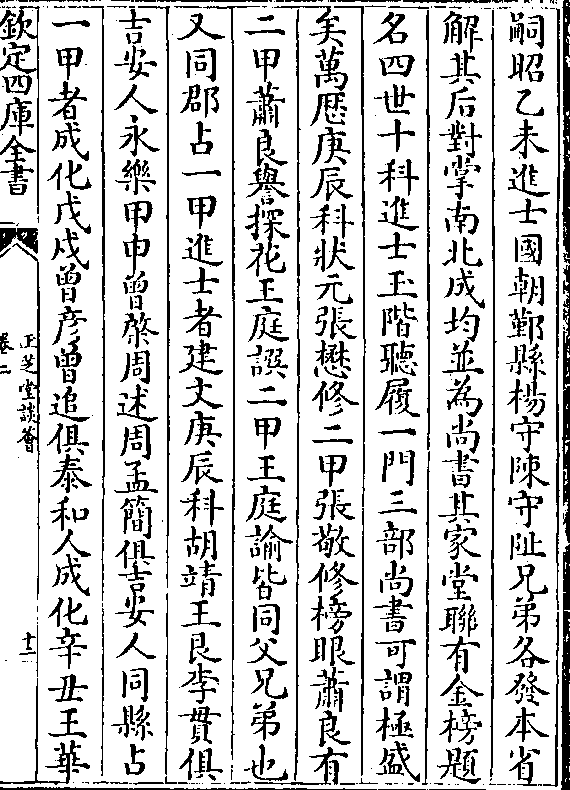 嗣昭乙未進士國朝鄞縣楊守陳守阯兄弟各發本省
解其后對掌南北成均並為尚書其家堂聯有金榜題
名四世十科進士玉階聽履一門三部尚書可謂極盛
矣萬厯庚辰科狀元張懋修二甲張敬修榜眼蕭良有
二甲蕭良譽探花王庭譔二甲王庭諭皆同父兄弟也
又同郡占一甲進士者建文庚辰科胡靖王艮李貫俱
吉安人永樂甲申曽棨周述周孟簡俱吉安人同縣占
一甲者成化戊戍曽彦曽追俱泰和人成化辛丑王華
欽定四庫全書
玉芝堂談薈
卷二
十二